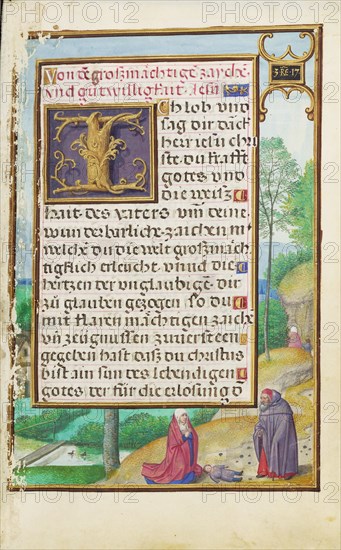 3 Re 17
Von dē großmachtigē zaichē
vnd gutwilligkait Jesu
Ich lob vnd
sag dir dāck
herr iesu chri
ste. du krafft
gotes vnd
die weisz
hait des vaters vm̄ deine
wunderbarliche zaichen mi
welche du die welt großmäch
tigklich erleucht. vnnd die
hertzen der vnglaubigē. dir
zů glauben gezogen so du
mit klaren mächtigen zaichē
vn̄ zeügnussen zuuersteen
gegeben hast daß du christus
bist ain sun des lebendigen
gotes der für die erlösing d